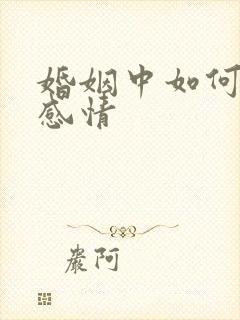 婚姻中如何
感情
嚴阿